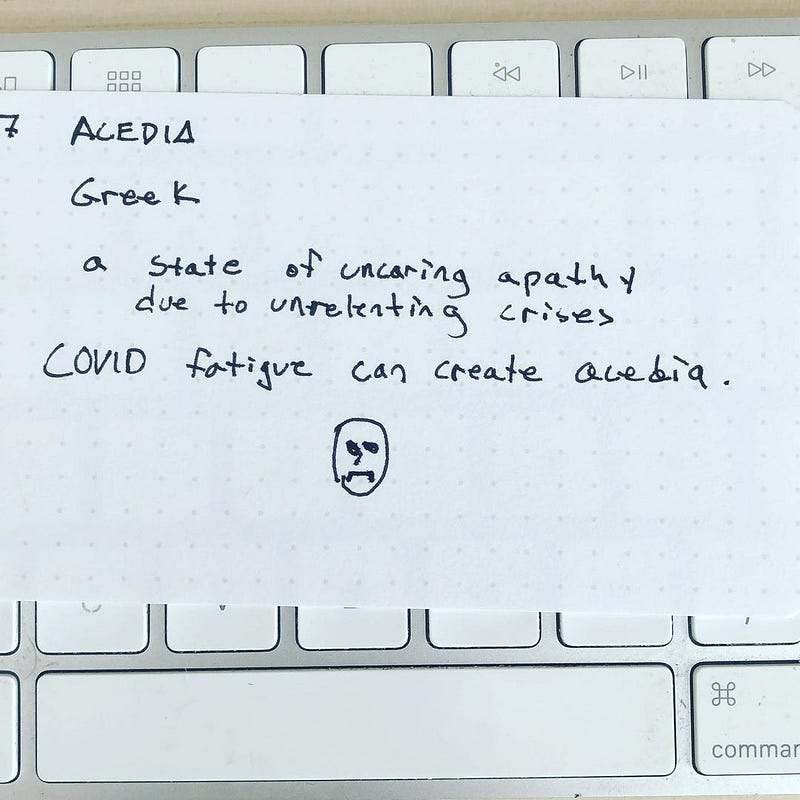 7 ACEDIA
Greek
a state of uncaring apathy
due to unrelenting crises
COVID fatigue can create acedia.
⌘
comman